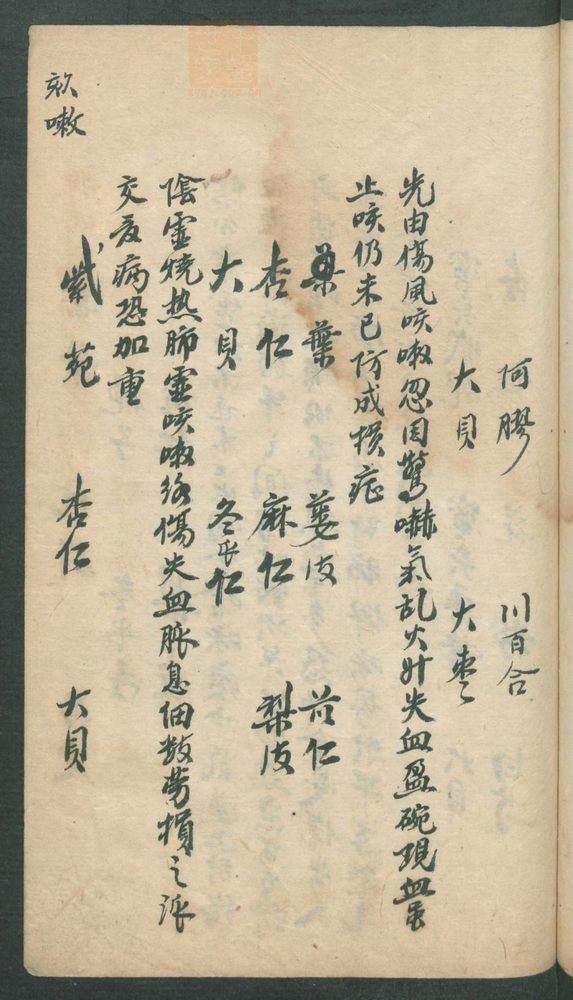 阿膠 川百合
大貝 大枣
先由傷風咳嗽忽因驚嚇氣乱火升失血盈碗現血虽
止咳仍未已防成損症
桑葉 蒌皮 苡仁
杏仁 麻仁 梨皮
大貝 冬瓜仁
陰虚燒热肺虚咳嗽絡傷失血脉息细数劳損之派
交夏病恐加重
紫苑 杏仁 大貝
欬嗽